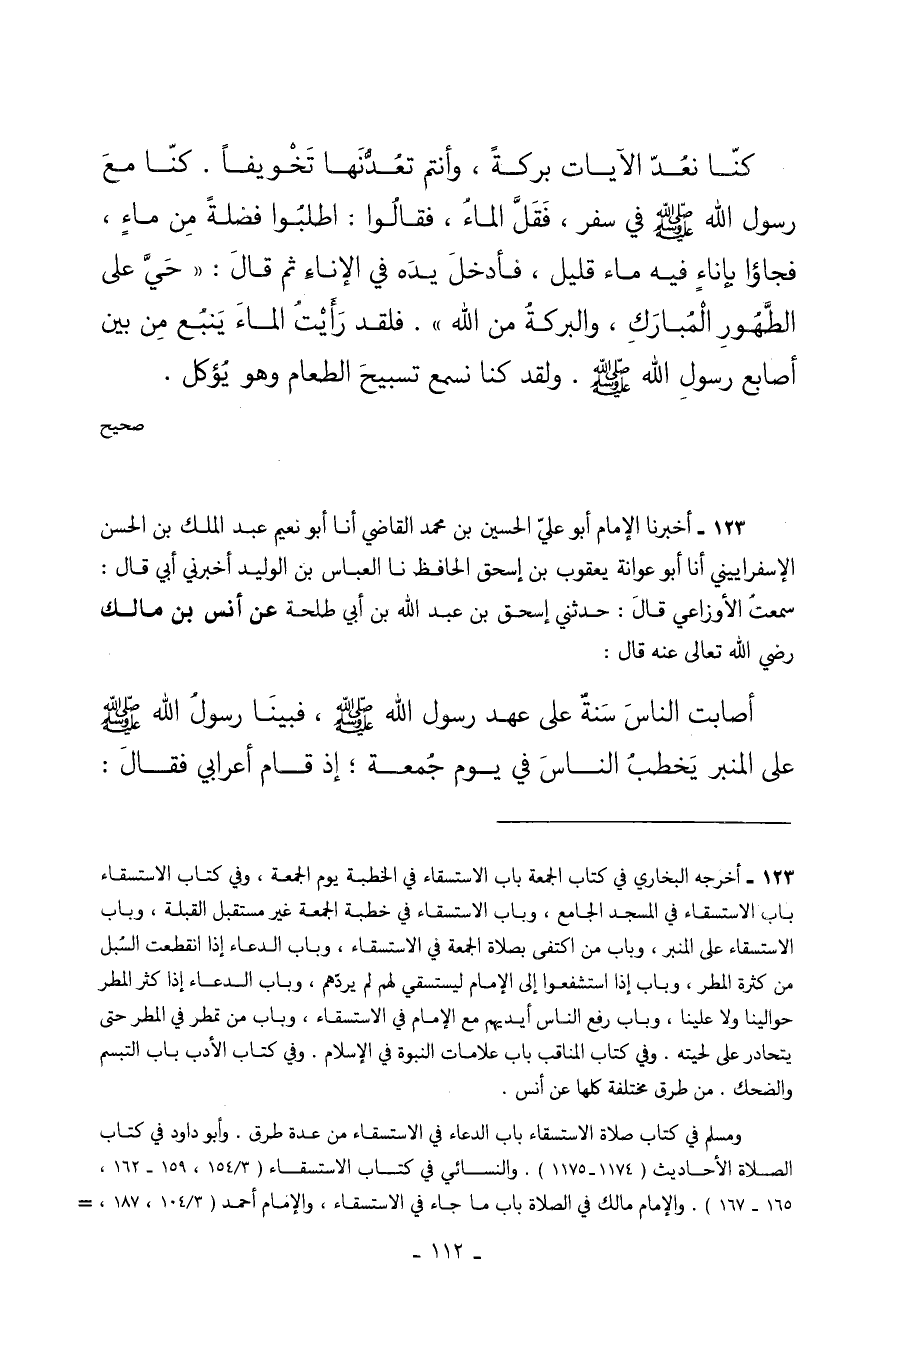 كنّا نعُدّ الآيات بركةً ، وأنتم تعُدُّنَها تَخْويفاً . كنّا معَ
رسول الله ﷺ في سفر ، فَقَلَّ الماءُ ، فقالُوا : اطلبُوا فضلةً مِن ماءٍ ،
فجاؤا بإناءٍ فيه ماء قليل ، فأدخلَ يدَه في الإناء ثم قالَ : « حَيَّ على
الطَّهُورِ الْمُبارَكِ ، والبركةُ من الله » . فلقد رَأَيْتُ الماءَ يَنبُع مِن بين
أصابع رسولِ الله ﷺ . ولقد كنا نسمع تسبيحَ الطعام وهو يُؤكل .
صحيح
١٢٣ ـ أخبرنا الإمام أبو عليّ الحسين بن محمد القاضي أنا أبو نعيم عبد الملك بن الحسن
الإسفراييني أنا أبو عوانة يعقوب بن إسحق الحافظ نا العباس بن الوليد أخبرني أبي قال :
سمعتُ الأوزاعي قالَ : حدثني إسحق بن عبد الله بن أبي طلحة عن أنس بن مالك
رضي الله تعالى عنه قال :
أصابت الناسَ سَنةٌ على عهد رسول الله ﷺ ، فبينَا رسولُ الله ﷺ
على المنبر يَخطبُ الناسَ في يوم جُمعة ؛ إذ قام أعرابي فقالَ :
١٢٣ ـ أخرجه البخاري في كتاب الجمعة باب الاستسقاء في الخطبة يوم الجمعة ، وفي كتاب الاستسقاء
باب الاستسقاء في المسجد الجامع ، وباب الاستسقاء في خطبة الجمعة غير مستقبل القبلة ، وباب
الاستسقاء على المنبر ، وباب من اكتفى بصلاة الجمعة في الاستسقاء ، وباب الدعاء إذا انقطعت السُبل
من كثرة المطر ، وباب إذا استشفعوا إلى الإمام ليستسقي لهم لم يردّهم ، وباب الدعاء إذا كثر المطر
حوالينا ولا علينا ، وباب رفع الناس أيديهم مع الإمام في الاستسقاء ، وباب من تمطر في المطر حتى
يتحادر على لحيته . وفي كتاب المناقب باب علامات النبوة في الإسلام . وفي كتاب الأدب باب التبسم
والضحك . من طرق مختلفة كلها عن أنس .
ومسلم في كتاب صلاة الاستسقاء باب الدعاء في الاستسقاء من عدة طرق . وأبو داود في كتاب
الصلاة الأحاديث ( ١١٧٤ـ١١٧٥ ) . والنسائي في كتاب الاستسقاء ( ١٥٤/٣ ، ١٥٩ ـ ١٦٢ ،
١٦٥ ـ ١٦٧ ) . والإمام مالك في الصلاة باب ما جاء في الاستسقاء ، والإمام أحمد ( ١٠٤/٣ ، ١٨٧ ، =
ـ ١١٢ ـ